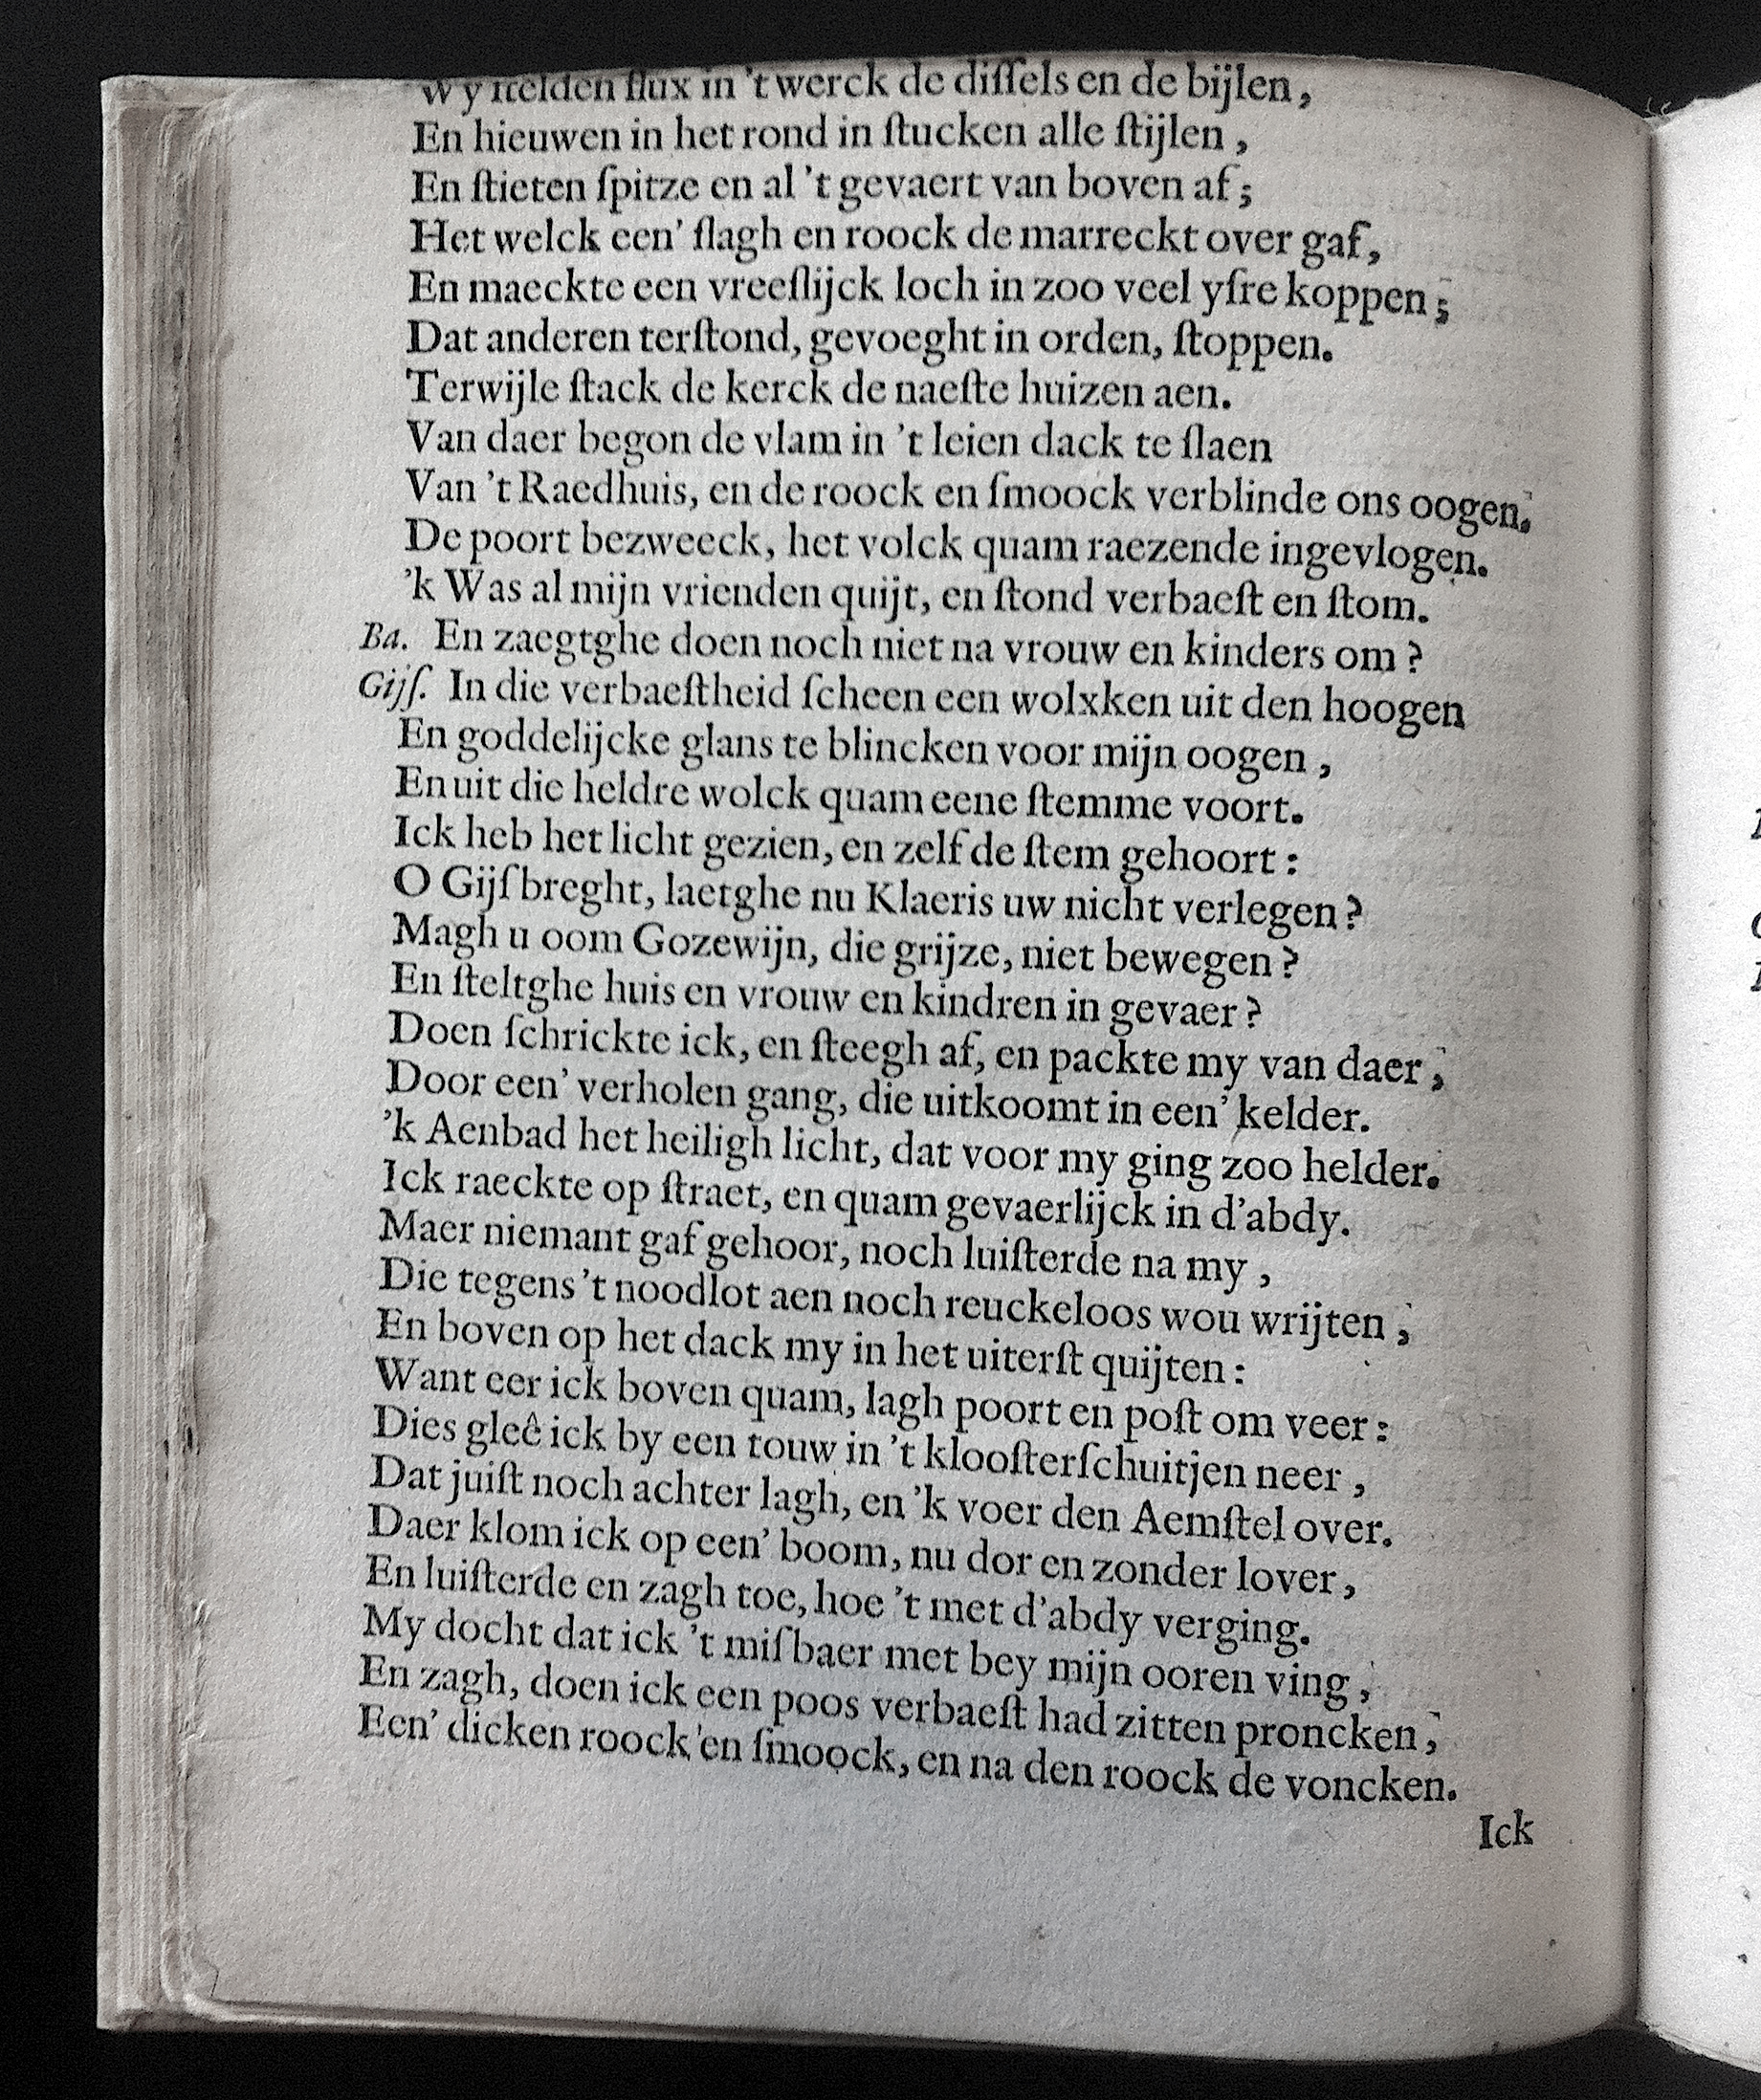 Wy ſtelden flux in 't werck de diſſels en de bijlen,
En hieuwen in het rond in ſtucken alle ſtijlen,
En ſtieten ſpitze en al 't gevaert van boven af;
Het welck een' ſlagh en roock de marreckt over gaf,
En maeckte een vreeſlijck loch in zoo veel yſre koppen;
Dat anderen terſtond, gevoeght in orden, ſtoppen.
Terwijle ſtack de kerck de naeſte huizen aen.
Van daer begon de vlam in 't leien dack te ſlaen
Van 't Raedhuis, en de roock en ſmoock verblinde ons oogen.
De poort bezweeck, het volck quam raezende ingevlogen.
'k Was al mijn vrienden quijt, en ſtond verbaeſt en ſtom.
Ba. En zaegtghe doen noch niet na vrouw en kinders om?
Gijſ. In die verbaeſtheid ſcheen een wolxken uit den hoogen
En goddelijcke glans te blincken voor mijn oogen,
En uit die heldre wolck quam eene ſtemme voort.
Ick heb het licht gezien, en zelf de ſtem gehoort:
O Gijſbreght, laetghe nu Klaeris uw nicht verlegen?
Magh u oom Gozewijn, die grijze, niet bewegen?
En ſteltghe huis en vrouw en kindren in gevaer?
Doen ſchrickte ick, en ſteegh af, en packte my van daer,
Door een' verholen gang, die uitkoomt in een' kelder.
'k Aenbad het heiligh licht, dat voor my ging zoo helder.
Ick raeckte op ſtraet, en quam gevaerlijck in d'abdy.
Maer niemant gaf gehoor, noch luiſterde na my,
Die tegens 't noodlot aen noch reuckeloos wou wrijten,
En boven op het dack my in het uiterſt quijten:
Want eer ick boven quam, lagh poort en poſt om veer:
Dies gleê ick by een touw in 't klooſterſchuitjen neer,
Dat juiſt noch achter lagh, en 'k voer den Aemſtel over.
Daer klom ick op een' boom, nu dor en zonder lover,
En luiſterde en zagh toe, hoe 't met d'abdy verging.
My docht dat ick 't miſbaer met bey mijn ooren ving,
En zagh, doen ick een poos verbaeſt had zitten proncken,
Een' dicken roock en ſmoock, en na den roock de voncken.
Ick